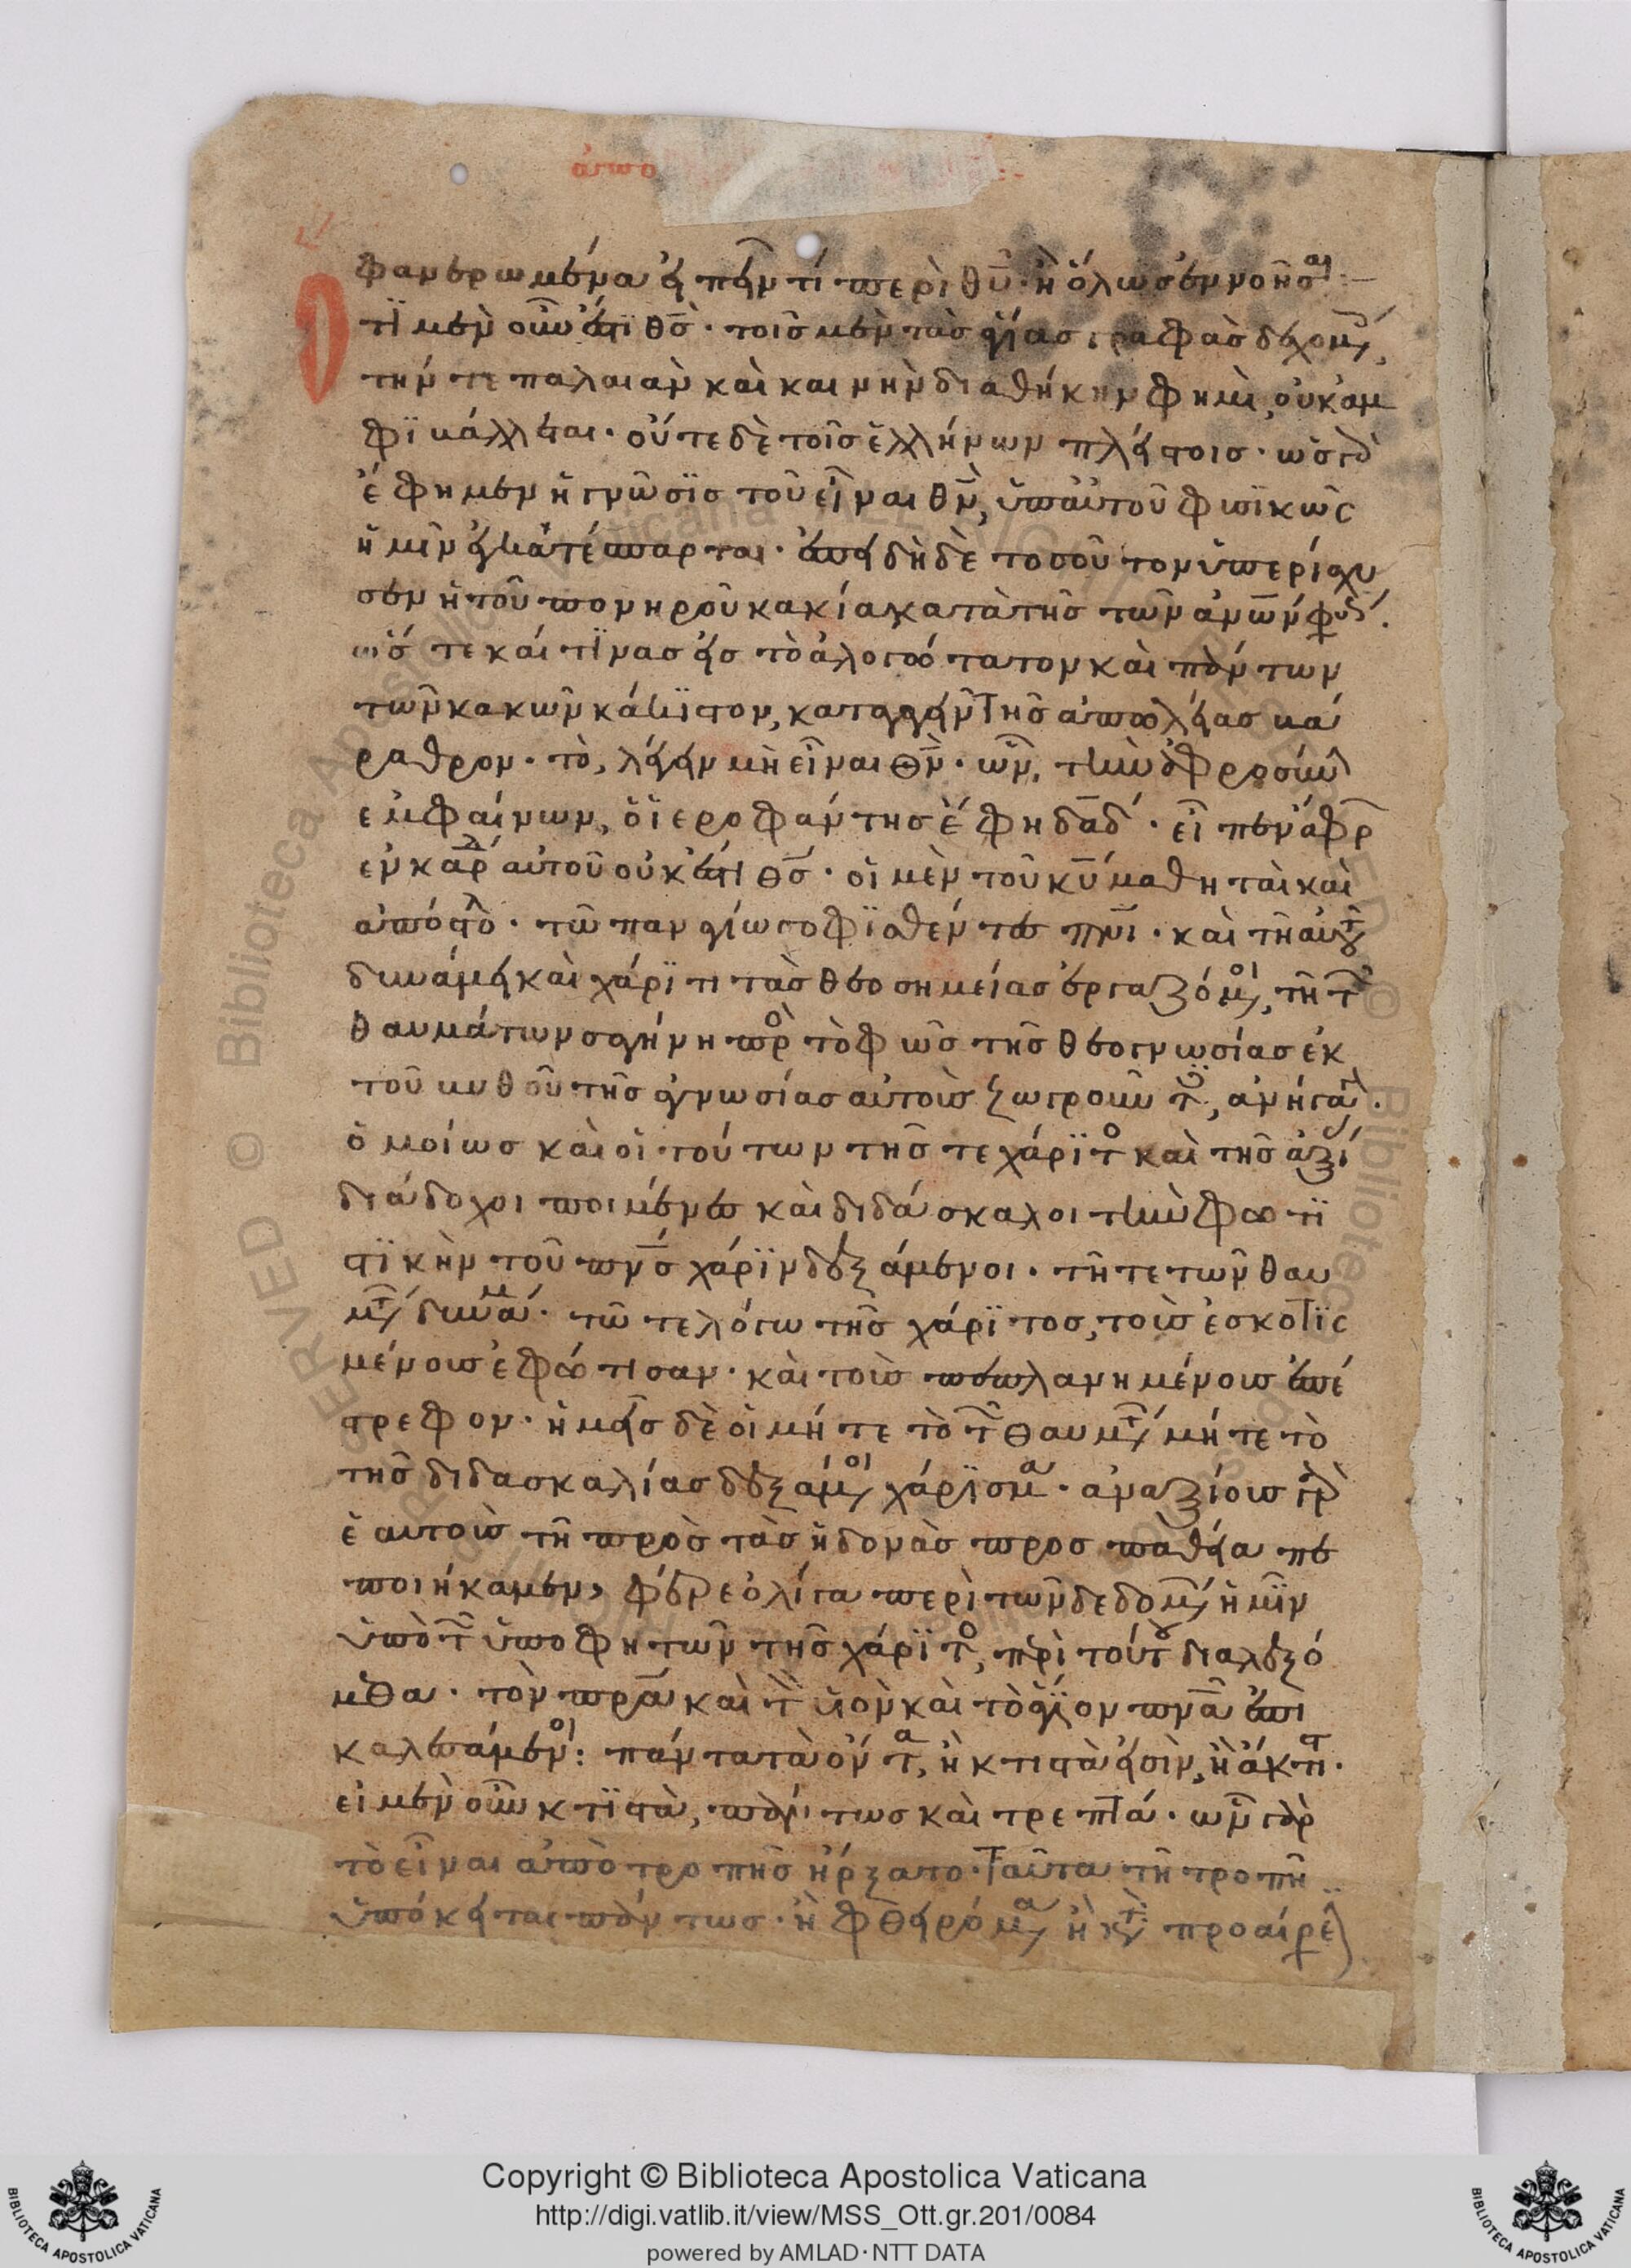 ἀπο
φανερωμένα εἰπεῖν τί περὶ θυ̅· ἢ ὅλως ἐννοῆσαι
Ὅτι μὲν οὖν ἐστὶ θς̅· τοῖς μὲν τὰς ἁγίας γραφὰς δεχομ
τήν τε παλαιὰν καὶ καινὴν διαθήκην φημὶ, οὐκ ἀμ
φιβάλλεται· οὔτε δὲ τοῖς ἑλλήνων πλείστοις· ὡς γὰρ
ἔφημεν ἡ γνῶσις τοῦ εἶναι θν̅, ὑπ αὐτοῦ φυσικῶς
ἡμῖν ἐγκατέσπαρται· ἐπειδὴ δὲ τοσοῦτον ὑπερίσχυ
σεν ἡ τοῦ πονηροῦ κακία κατὰ τῆς τῶν ἀνων̅ φύσ
ὥς τε καί τινας εἰς τὸ ἀλογώτατον καὶ πάντων
τῶν κακῶν κάκιστον, καταγαγεῖν τῆς ἀπωλείας βά
ραθρον· τὸ, λέγειν μὴ εἶναι θν̅· ὧν, τὴν ἀφροσύν
ἐμφαίνων, ὁ ἱεροφάντης ἔφη δαδ̅· εἶπεν ἄφρ
ἐν καρδ αὐτοῦ οὐκ ἔστι θς̅· οἱ μὲν τοῦ κυ̅ μαθηταὶ καὶ
ἀπόστολ· τῶ παναγίω σοφισθέντες πνι̅· καὶ τῆ αὐτοῦ
δυνάμει καὶ χάριτι τὰς θεοσημείας ἐργαζόμοι, τῆ τῶν
θαυμάτων σαγήνη πρὸ τὸ φῶς τῆς θεογνωσίας ἐκ
τοῦ βυθοῦ τῆς ἀγνωσίας αὐτοὺς ζωγροῦντ, ἀνῆγον·
ὁμοίως καὶ οἱ τούτων τῆς τε χάριτο καὶ τῆς ἀξί
διάδοχοι ποιμένες καὶ διδάσκαλοι τὴν φωτι
στικὴν τοῦ πνς̅ χάριν δεξάμενοι· τῆ τε τῶν θαυ
μτ δυνάμ· τῶ τε λόγω τῆς χάριτος, τοὺς ἐσκοτισ
μένους ἐφώτισαν· καὶ τοὺς πεπλανημένους ἐπέ
στρεφον· ἡμεῖς δὲ οἱ μήτε τὸ τῶν θαυμτ μήτε τὸ
τῆς διδασκαλίας δεξάμοι χάρισμα· ἀναξίους γὰρ
ἑαυτοὺς τῆ πρὸς τὰς ἡδονὰς προσπαθεία πε
ποιήκαμεν, φέρε ὀλίγα περὶ τῶν δεδομ ἡμῖν
ὑπὸ τῶν ὑποφητῶν τῆς χάριτο, περὶ τούτου διαλεξό
μεθα· τὸν πρα̅ καὶ τὸν υἱὸν καὶ τὸ ἅγιον πνα̅ ἐπι
καλεσάμενοι: πάντα τὰ ὄντα, ἢ κτιστὰ εἰσὶν, ἢ ἄκτιστ·
εἰ μὲν οὖν κτιστὰ, πάντως καὶ τρεπτά· ὧν γὰρ
τὸ εἶναι ἀπὸ τροπῆς ἤρξατο· ταῦτα τῆ τροπῆ
ὑπόκειται πάντως· ἢ φθειρόμα ἢ κτ προαίρε
Copyright © Biblioteca Apostolica Vaticana
http://digi.vatlib.it/view/MSS_Ott.gr.201/0084
powered by AMLAD·NTT DATA
BIBLIOTECA APOSTOLICA VATICANA
BIBLIOTECA APOSTOLICA VATICANA